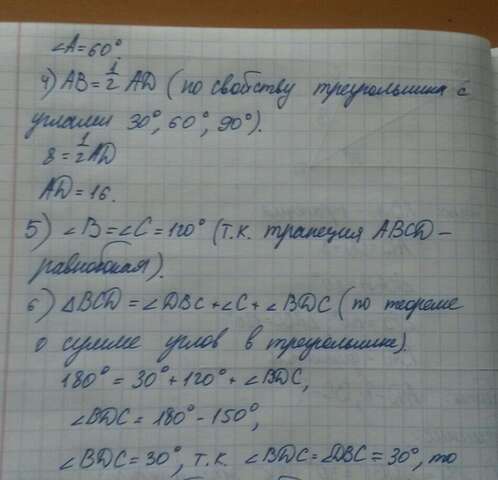 ∠A=60°
4) AB=1/2 AD (по свойству треугольника с
углами 30°, 60°, 90°).
8=1/2AD
AD=16.
5) ∠B=∠C=120° (т.к. трапеция ABCD-
равнобокая).
6) △BCD=∠DBC+∠C+∠BDC (по теореме
о сумме углов в треугольнике).
180°=30°+120°+∠BDC,
∠BDC=180°-150°,
∠BDC=30°, т.к. ∠BDC=∠DBC=30°, то